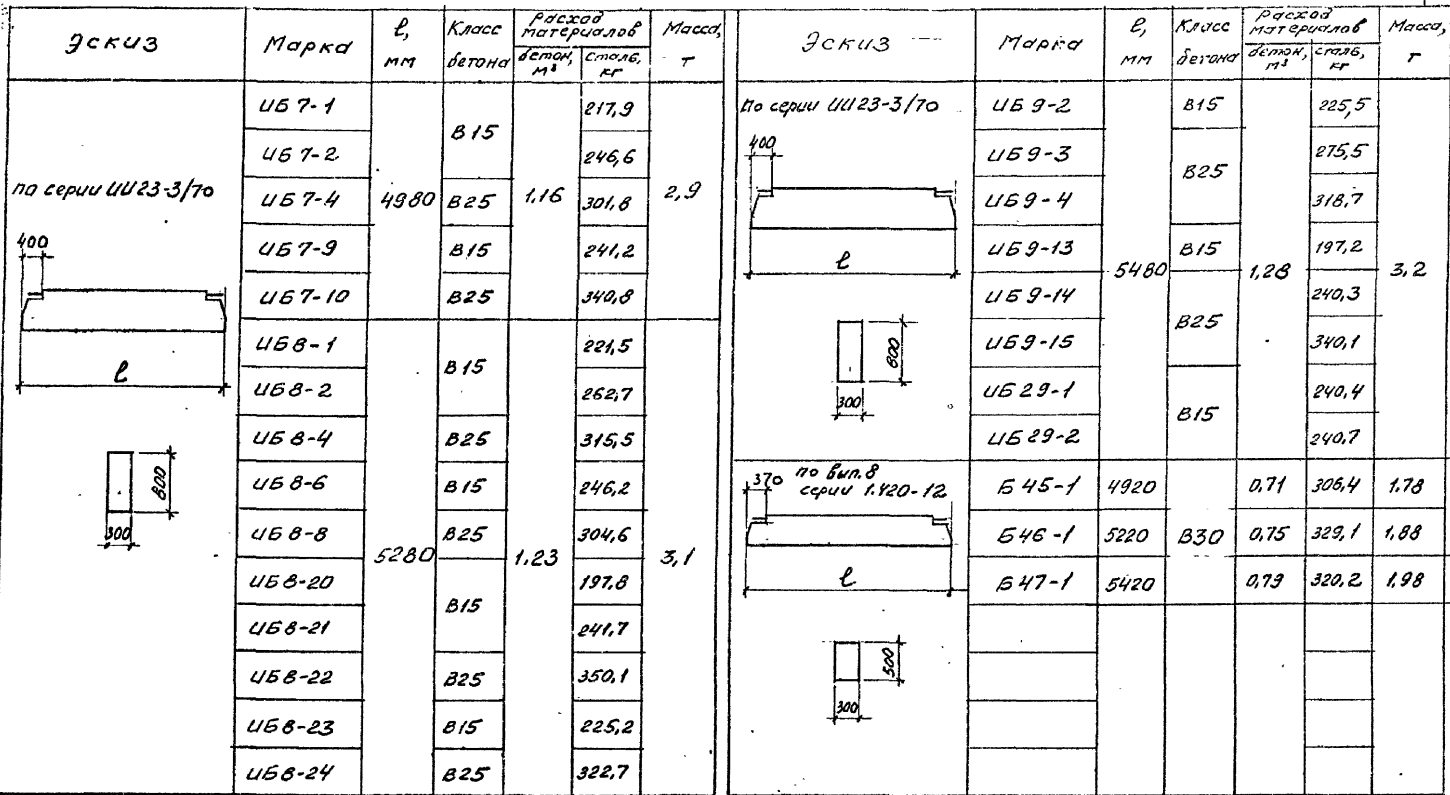 Эскиз Марка ℓ, мм Класс бетона Расход материалов бетон, м³ сталь, кг Масса, т
по серии ИИ23-3/70
400
ℓ
800
300
ИБ 7-1 4980 В15 1,16 217,9 2,9
ИБ 7-2 246,6
ИБ 7-4 В25 301,8
ИБ 7-9 В15 241,2
ИБ 7-10 В25 340,8
ИБ 8-1 5280 В15 1,23 221,5 3,1
ИБ 8-2 262,7
ИБ 8-4 В25 315,5
ИБ 8-6 В15 246,2
ИБ 8-8 В25 304,6
ИБ 8-20 В15 197,8
ИБ 8-21 241,7
ИБ 8-22 В25 350,1
ИБ 8-23 В15 225,2
ИБ 8-24 В25 322,7
Эскиз Марка ℓ, мм Класс бетона Расход материалов бетон, м³ сталь, кг Масса, т
По серии ИИ23-3/70
400
ℓ
800
300
ИБ 9-2 5480 В15 1,28 225,5 3,2
ИБ 9-3 В25 275,5
ИБ 9-4 318,7
ИБ 9-13 В15 197,2
ИБ 9-14 В25 240,3
ИБ 9-15 340,1
ИБ 29-1 В15 240,4
ИБ 29-2 240,7
по вып. 8
серии 1.420-12
370
ℓ
500
300
Б 45-1 4920 В30 0,71 306,4 1,78
Б 46-1 5220 0,75 329,1 1,88
Б 47-1 5420 0,79 320,2 1,98